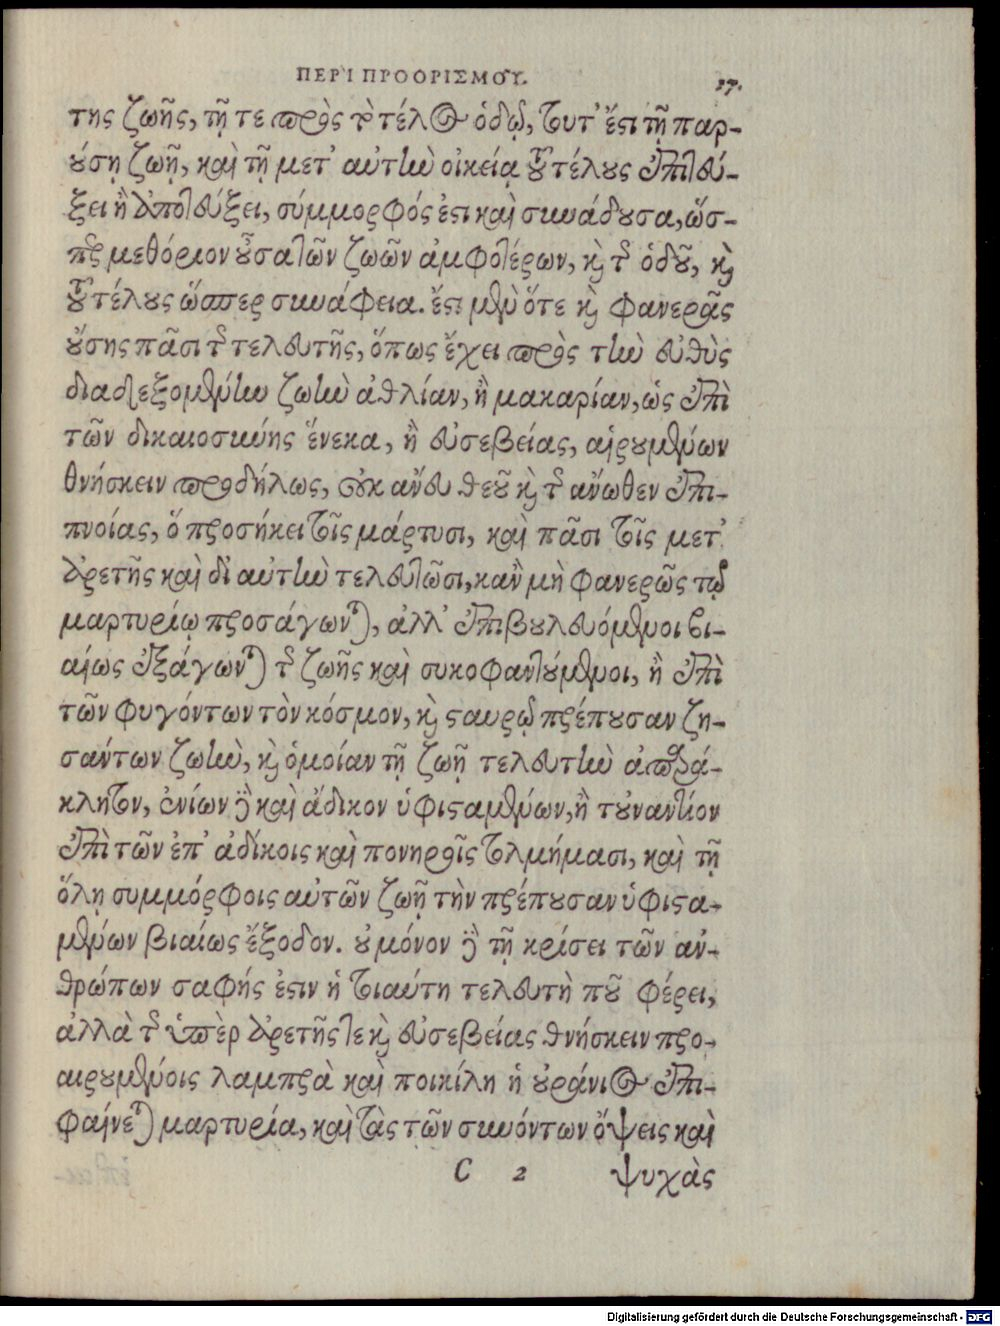 ΠΕΡΙ ΠΡΟΟΡΙΣΜΟΥ. 17.
της ζωῆς, τῇ τε πρὸς τὸ τέλος ὁδῷ, τουτ' ἔστι τῇ παρ-
ούσῃ ζωῇ, καὶ τῇ μετ' αὐτὴν οἰκείᾳ τοῦ τέλους ἐπιτεύ-
ξει ἢ ἀποτεύξει, σύμμορφός ἐστι καὶ συνάδουσα, ὥσ-
περ μεθόριον οὖσα τῶν ζωῶν ἀμφοτέρων, καὶ τῆς ὁδοῦ, καὶ
τοῦ τέλους ὥσπερ συνάφεια. ἔστι μὲν ὅτε καὶ φανερᾶς
οὔσης πᾶσι τῆς τελευτῆς, ὅπως ἔχει πρὸς τὴν εὐθὺς
διαδεξομένην ζωὴν ἀθλίαν, ἢ μακαρίαν, ὡς ἐπὶ
τῶν δικαιοσύνης ἕνεκα, ἢ εὐσεβείας, αἱρουμένων
θνήσκειν προδήλως, οὐκ ἄνευ θεοῦ καὶ τῆς ἄνωθεν ἐπι-
πνοίας, ὃ προσήκει τοῖς μάρτυσι, καὶ πᾶσι τοῖς μετ'
ἀρετῆς καὶ δι' αὐτὴν τελευτῶσι, κἂν μὴ φανερῶς τῷ
μαρτυρίῳ προσάγωνται, ἀλλ' ἐπιβουλευόμενοι βι-
αίως ἐξάγωνται τῆς ζωῆς καὶ συκοφαντούμενοι, ἢ ἐπὶ
τῶν φυγόντων τὸν κόσμον, καὶ σταυρῷ πρέπουσαν ζη-
σάντων ζωὴν, καὶ ὁμοίαν τῇ ζωῇ τελευτὴν ἀπαρά-
κλητον, ἐνίων δὲ καὶ ἄδικον ὑφισταμένων, ἢ τοὐναντίον
ἐπὶ τῶν ἐπ' ἀδίκοις καὶ πονηροῖς τολμήμασι, καὶ τῇ
ὅλῃ συμμόρφοις αὐτῶν ζωῇ τὴν πρέπουσαν ὑφιστα-
μένων βιαίως ἔξοδον. οὐ μόνον δὲ τῇ κρίσει τῶν ἀν-
θρώπων σαφής ἐστιν ἡ τοιαύτη τελευτὴ ποῦ φέρει,
ἀλλὰ τοῖς ὑπὲρ ἀρετῆς τε καὶ εὐσεβείας θνήσκειν προ-
αιρουμένοις λαμπρὰ καὶ ποικίλη ἡ οὐράνιος ἐπι-
φαίνεται μαρτυρία, καὶ τὰς τῶν συνόντων ὄψεις καὶ
C 2 ψυχὰς
Digitalisierung gefördert durch die Deutsche Forschungsgemeinschaft - DFG